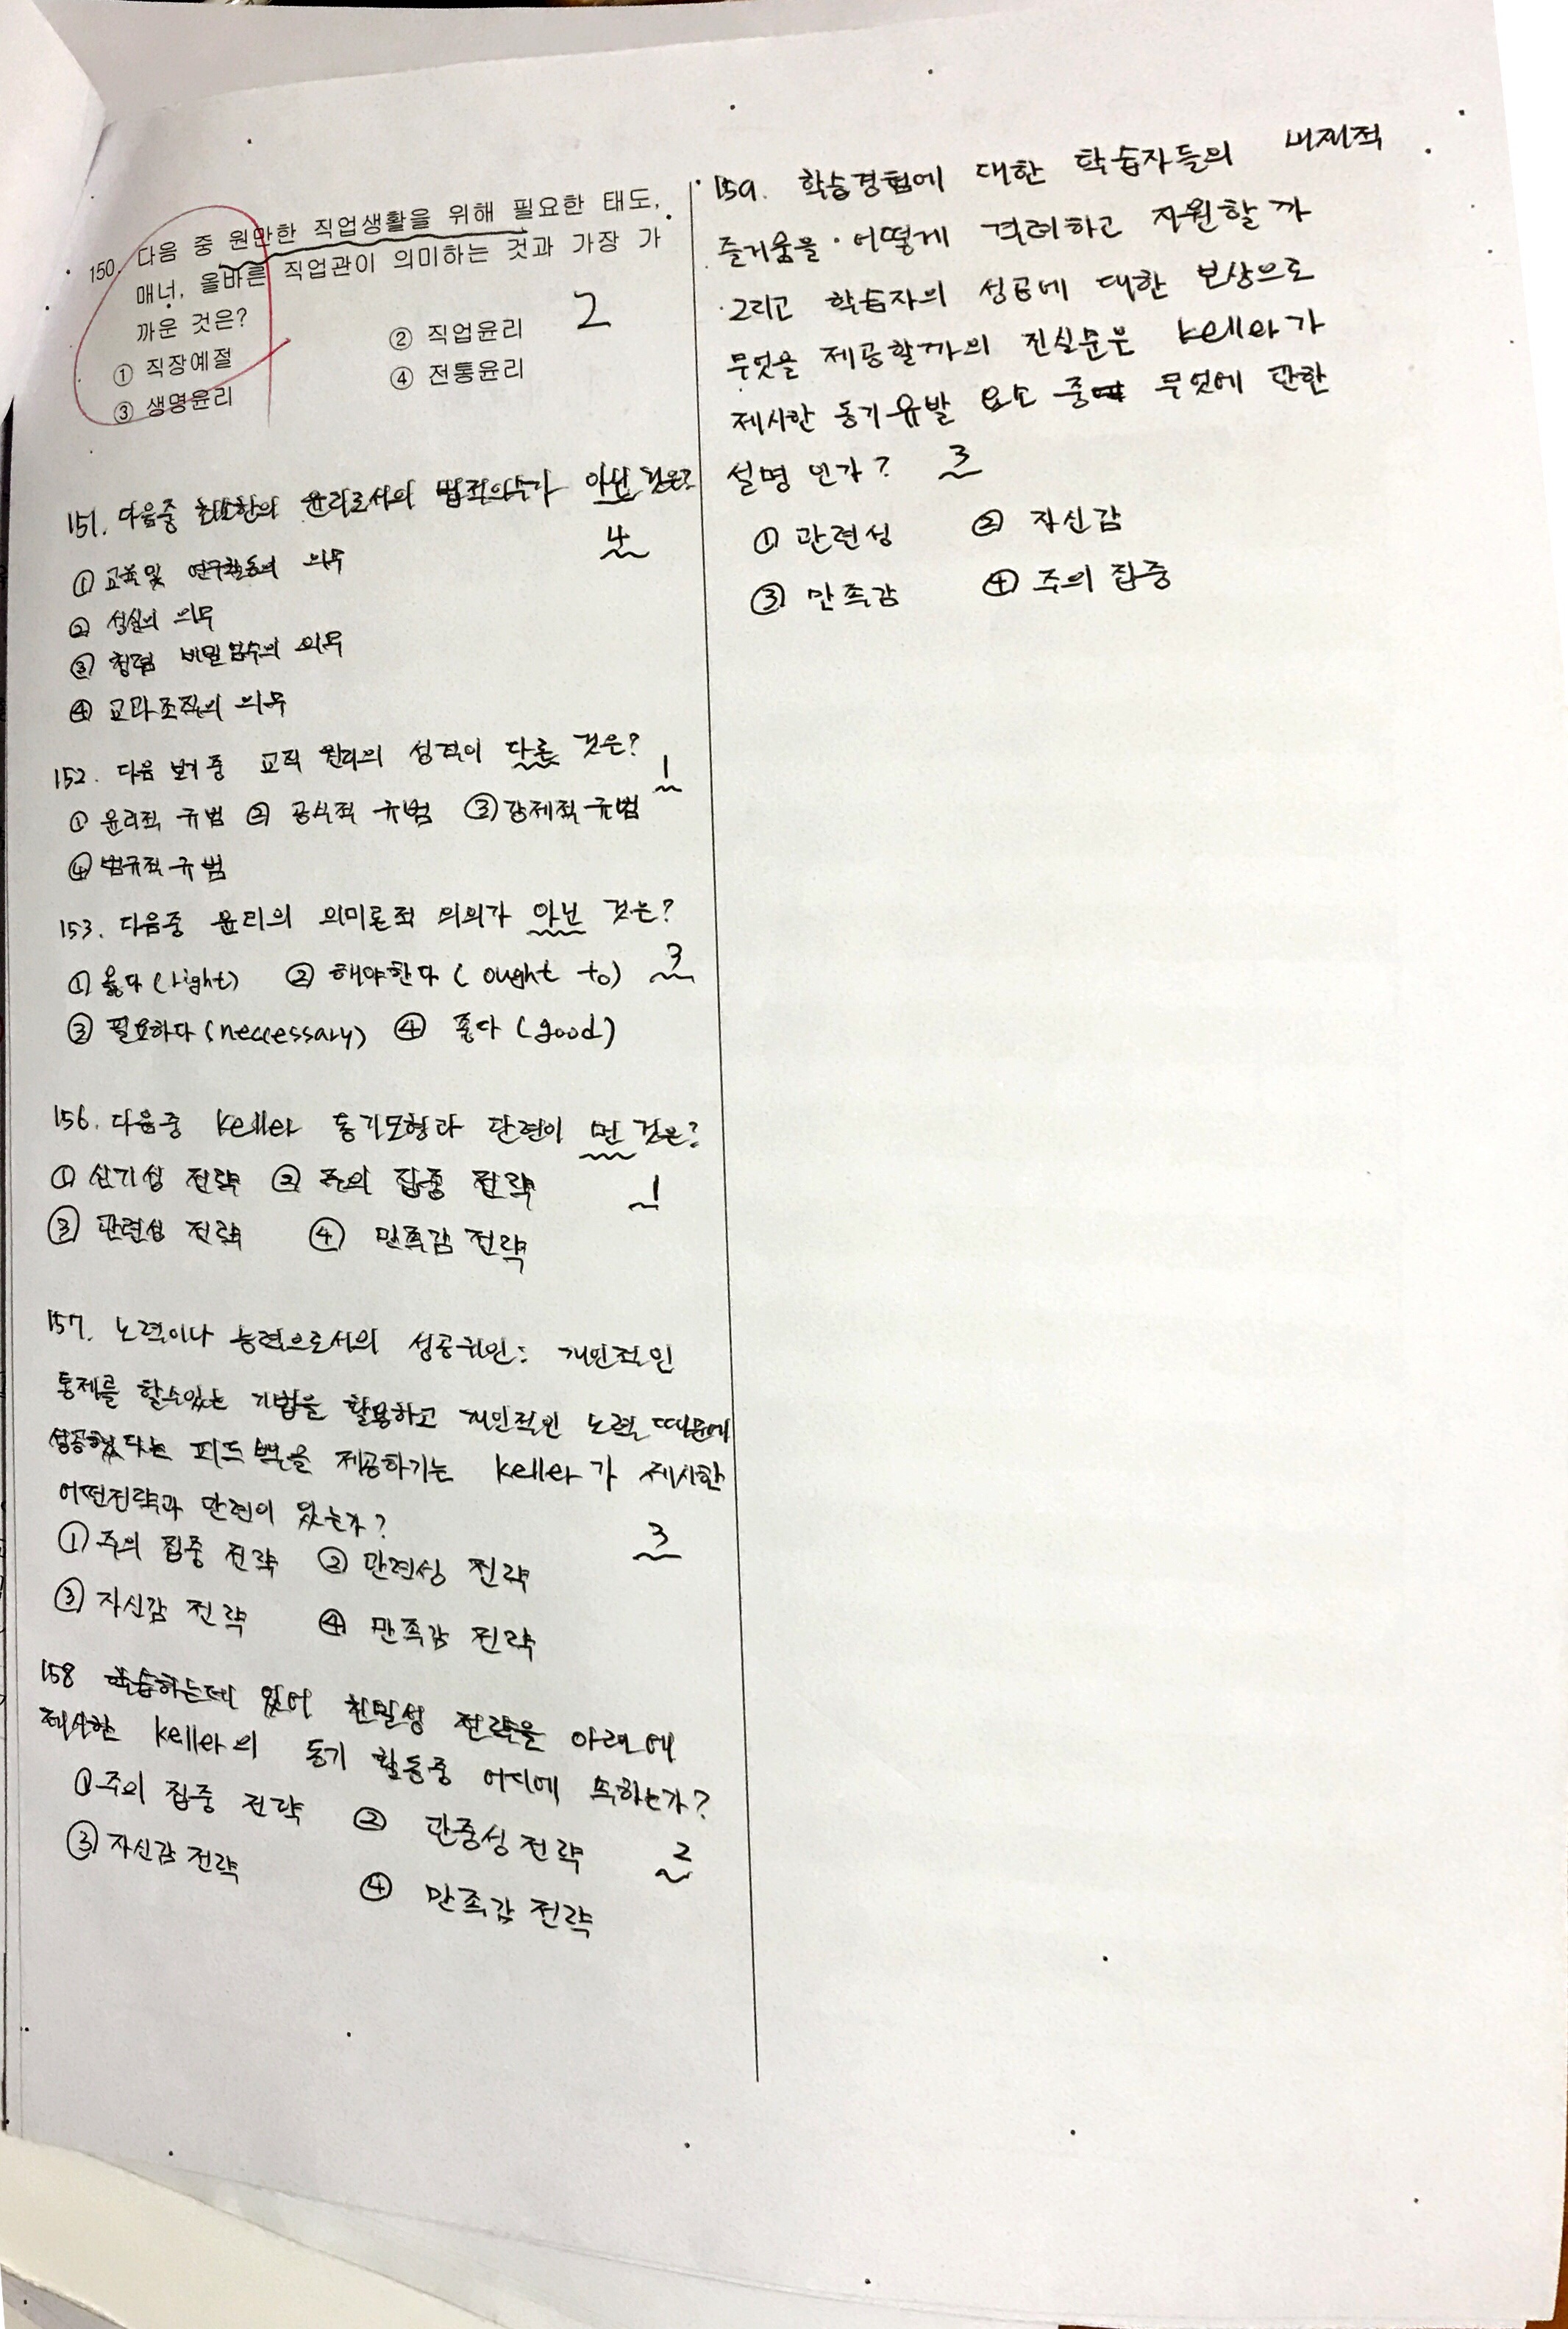 150. 다음 중 원만한 직업생활을 위해 필요한 태도,
매너, 올바른 직업관이 의미하는 것과 가장 가
까운 것은?
2
① 직장예절 ② 직업윤리
③ 생명윤리 ④ 전통윤리
151. 다음중 최소한의 윤리로서의 법적의수가 아닌 것은?
4
① 교육및 연구활동의 의무
② 성실의 의무
③ 청렴 비밀 엄수의 의무
④ 교과조직의 의무
152. 다음 보기중 교직 윤리의 성격이 다른 것은?
1
① 윤리적 규범 ② 공식적 규범 ③ 강제적 규범
④ 법규적 규범
153. 다음중 윤리의 의미론적 의의가 아닌 것은?
3
① 옳다 (right) ② 해야한다 ( ought to)
③ 필요하다 (neccessary) ④ 좋다 (good)
156. 다음중 keller 동기모형과 관련이 먼 것은?
① 신기성 전략 ② 주의 집중 전략 1
③ 관련성 전략 ④ 만족감 전략
157. 노력이나 능력으로서의 성공귀인: 개인적인
통제를 할수있는 기법을 활용하고 개인적인 노력 때문에
성공했다는 피드백을 제공하기는 keller가 제시한
어떤전략과 관련이 있는가?
3
① 주의 집중 전략 ② 관련성 전략
③ 자신감 전략 ④ 만족감 전략
158 학습하는데 있어 친밀성 전략을 아래에
제시한 keller의 동기 활동중 어디에 속하는가?
① 주의 집중 전략 ② 관중성 전략
2
③ 자신감 전략 ④ 만족감 전략
159. 학습경험에 대한 학습자들의 내재적
즐거움을 어떻게 격려하고 지원할까
그리고 학습자의 성공에 대한 보상으로
무엇을 제공할까의 진실문은 keller가
제시한 동기유발 요소 중 무엇에 관한
설명 인가? 3
① 관련성 ② 자신감
③ 만족감 ④ 주의 집중